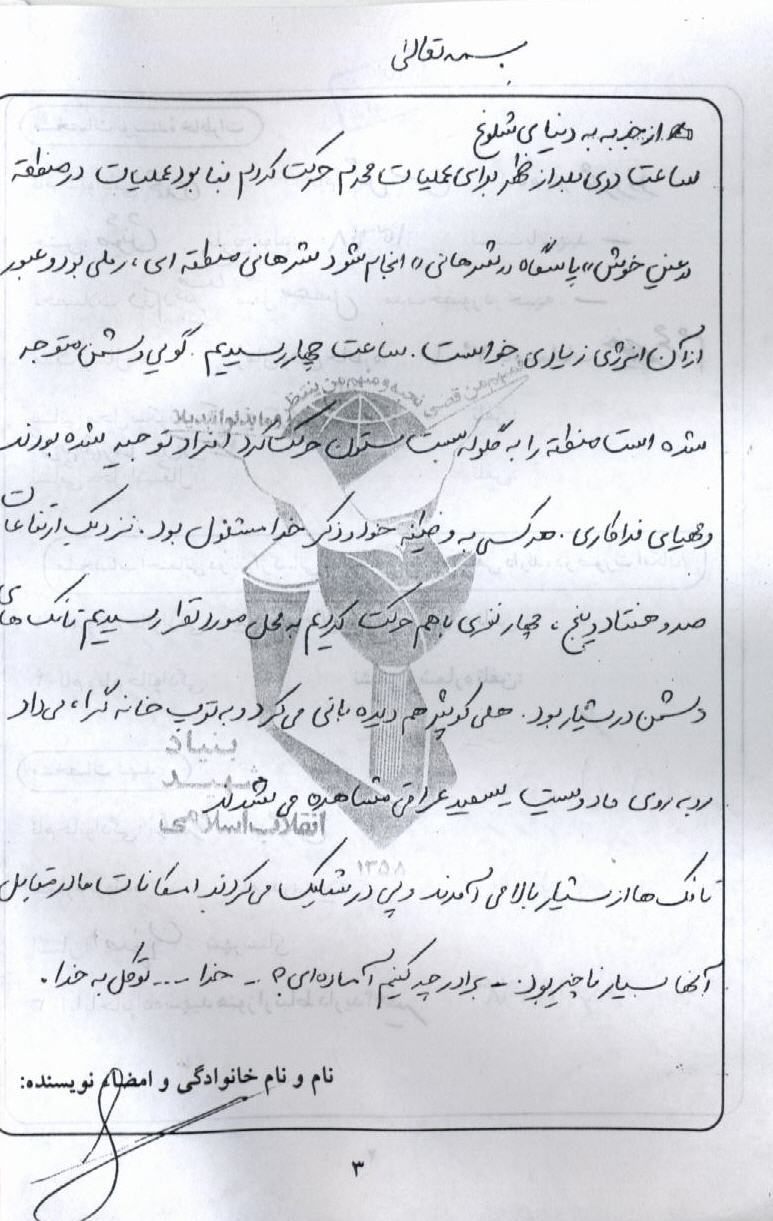 بسمه تعالی
از جزیره به دنیای شلوغ
ساعت دوی بعد از ظهر برای عملیات محرم حرکت کردیم بنا بود عملیات در منطقه
در عین خوش، پاسگاه در شرهانی، انجام شود شرهانی منطقه ای، رملی بود و عبور
از آن انرژی زیادی خواست. ساعت چهار رسیدیم. گویی دشمن متوجه
شده است منطقه را به گلوله بست ستون حرکت کرد افراد توجیه شده بودند
و مهیای فداکاری. هر کسی به وظیفه خود و ذکر خدا مشغول بود. نزدیک ارتفاعات
صد و هفتاد و پنج، چهار نفری با هم حرکت کردیم به محل مورد قرار رسیدیم تانک های
دشمن در شیار بود. هلی کوپتر هم دیده بانی می کرد و به توپ خانه گرا، می داد
رو به روی ما دویست عراقی مشاهده می شدند
تانک ها از شیار بالا می آمدند و پی در شلیک می کردند امکانات ما در مقابل
آنها بسیار ناچیز بود. - برادر چه کنیم آماده ای؟ .. خدا ... توکل به خدا.
نام و نام خانوادگی و امضاء نویسنده:
۳
بنیاد
شهید
انقلاب اسلامی